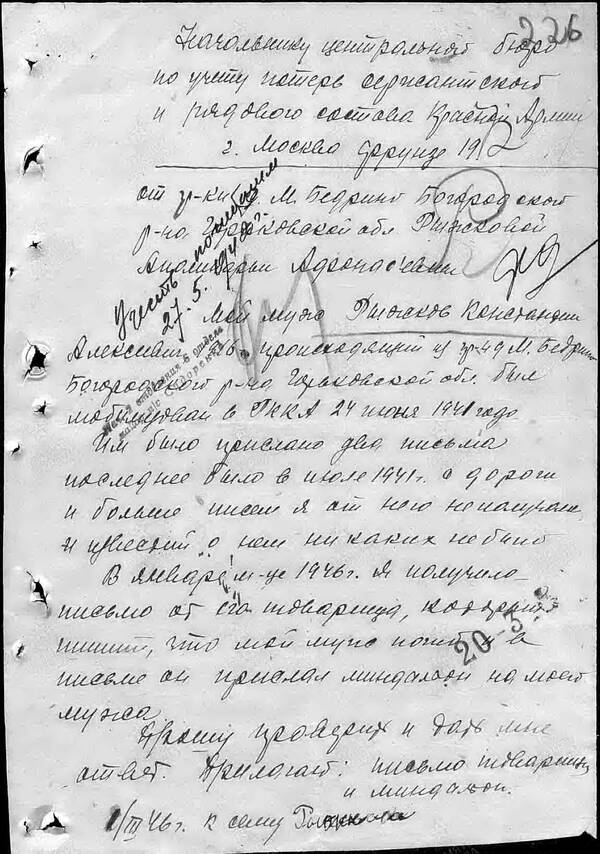 226
Начальнику центральной бюро
по учету потерь сержантского
и рядового состава Красной Армии
г. Москва Фрунзе 19
от гр-ки М. Бедрино Богородского
р-на Горьковской обл. Рыжковой
Учесть погибшим
27.5.1948г.
Мой муж Рыжков Константин
Алексеевич происходящий из гр-н д М. Бедрино
Богородского р-на Горьковской обл. был
мобилизован в РККА 24 июня 1941 годо
Им было прислано два письма
последнее было в июле 1941г. с дороги
и больше писем я от него не получала
и известий о нем никаких не было
В январе м-це 1946г. я получило
письмо от его товарища, который
пишит, что мой муж в
письме он прислал миндальон на моего
мужа
20-3-
Прошу проверить и дать мне
ответ. Прилогаю: письмо товарища
и миндальон.
1/III 46г. к сему Рыжкова